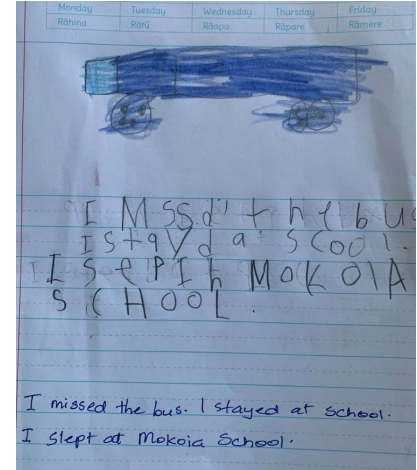 Monday Tuesday Wednesday Thursday Friday
Rāhina Rātū Rāapa Rāpare Rāmere
I M SS.d't h e b u
I s t a y d a t s c o o l .
I S e P I h M O K O I A
S C H O O L .
I missed the bus. I stayed at school.
I slept at Mokoia School.